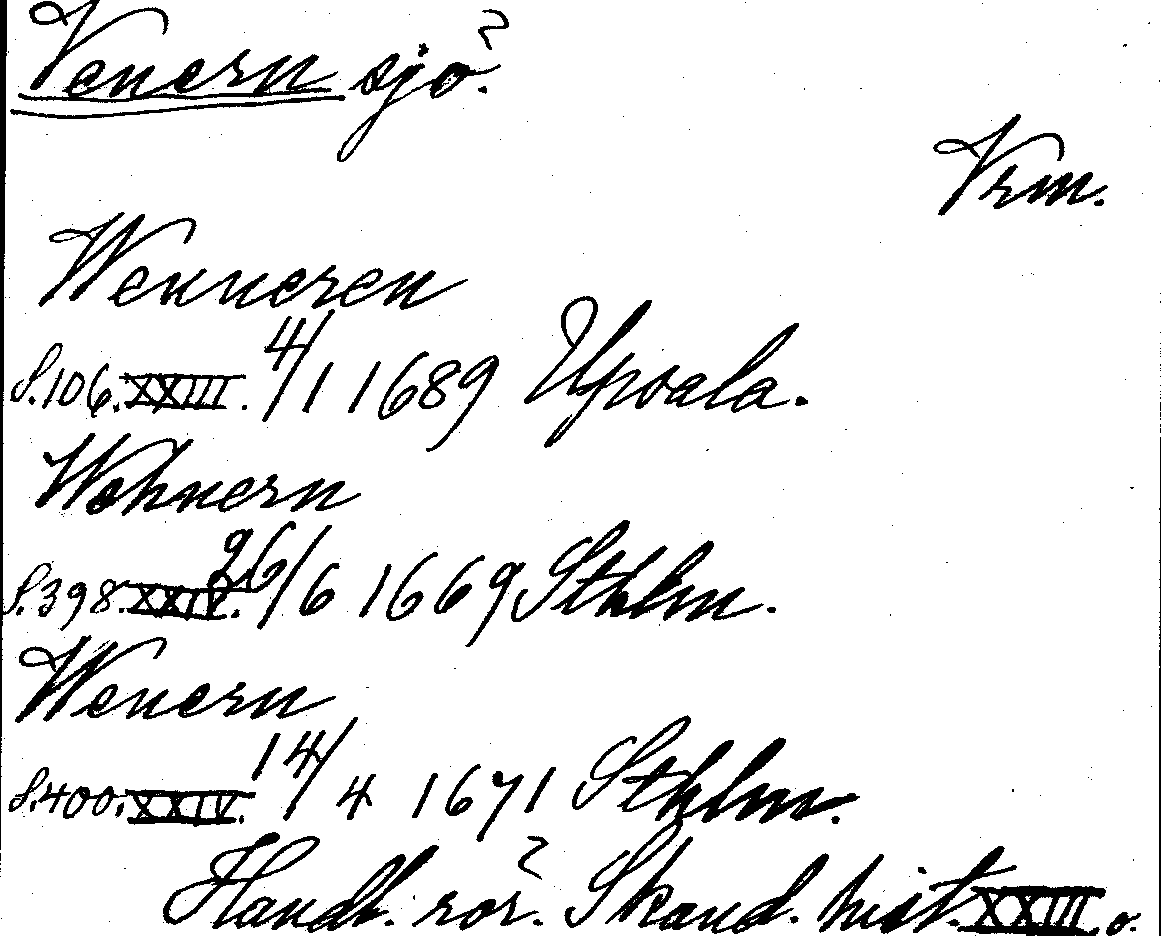 Venern sjö.
Vrm.
Wenneren
S. 106. XXIII. 4/1 1689 Upsala.
Wehnern
S. 398. XXIV. 26/6 1669 Sthlm.
Wenern
S. 400. XXIV. 14/4 1671 Sthlm.
Handl. rör. Skand. hist. XXIII o.